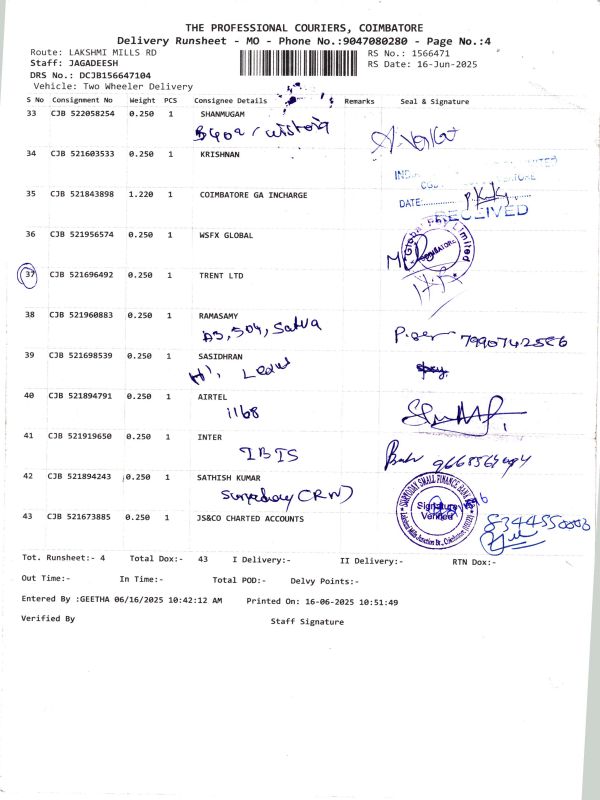 THE PROFESSIONAL COURIERS, COIMBATORE
Delivery Runsheet - MO - Phone No.:9047080280 - Page No.:4
Route: LAKSHMI MILLS RD RS No.: 1566471
Staff: JAGADEESH RS Date: 16-Jun-2025
DRS No.: DCJB156647104
Vehicle: Two Wheeler Delivery
S No Consignment No Weight PCS Consignee Details Remarks Seal & Signature
33 CJB 522058254 0.250 1 SHANMUGAM
B402
34 CJB 521603533 0.250 1 KRISHNAN
35 CJB 521843898 1.220 1 COIMBATORE GA INCHARGE
DATE:
RECEIVED
36 CJB 521956574 0.250 1 WSFX GLOBAL
Global Pay Limited
COIMBATORE
37 CJB 521696492 0.250 1 TRENT LTD
38 CJB 521960883 0.250 1 RAMASAMY
D3, 504, Satva
39 CJB 521698539 0.250 1 SASIDHRAN
40 CJB 521894791 0.250 1 AIRTEL
1168
41 CJB 521919650 0.250 1 INTER
IBIS
42 CJB 521894243 0.250 1 SATHISH KUMAR
SURYODAY SMALL FINANCE BANK
Signature Verified
43 CJB 521673885 0.250 1 JS&CO CHARTED ACCOUNTS
8344550003
Tot. Runsheet:- 4 Total Dox:- 43 I Delivery:- II Delivery:- RTN Dox:-
Out Time:- In Time:- Total POD:- Delvy Points:-
Entered By :GEETHA 06/16/2025 10:42:12 AM Printed On: 16-06-2025 10:51:49
Verified By Staff Signature